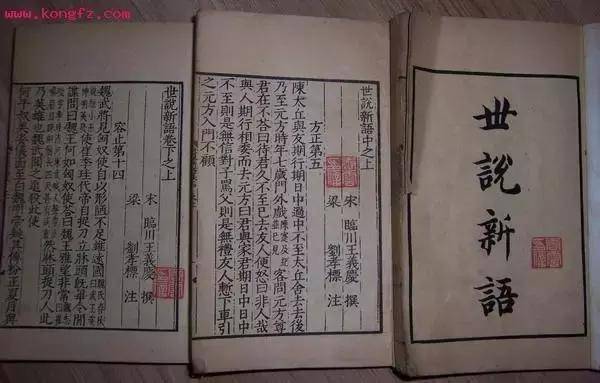 www.kongfz.com
世說新語
世說新語中之上
宋 臨川王義慶 撰
梁 劉孝標 注
方正第五
陳太丘與友期行期日中過中不至太丘舍去去後
乃至元方時年七歲門外戲陳寔及紀並已見客問元方尊
君在不答曰待君久不至已去友人便怒曰非人哉
與人期行相委而去元方曰君與家君期日中日中
不至則是無信對子罵父則是無禮友人慙下車引
之元方入門不顧
世說新語卷下之上
宋 臨川王義慶 撰
梁 劉孝標 注
容止第十四
魏武將見匈奴使自以形陋不足雄遠國魏氏春秋曰武王姿
貌短小而神明英發使崔季珪代帝自捉刀立牀頭既畢令間
諜問曰魏王何如匈奴使答曰魏王雅望非常
然牀頭捉刀人此
乃英雄也魏武聞之追殺此使
何平叔美姿儀面至白魏明帝疑其傅粉正夏月與